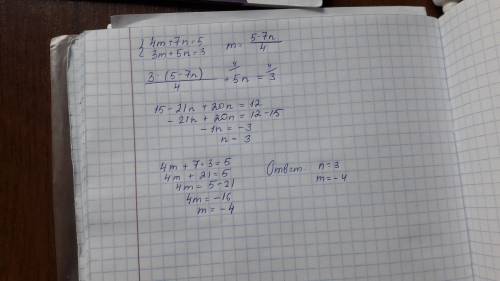 { 4m+7n=5
3m+5n=3 m= 5-7n/4
3·(5-7n)/4 + 5n = 3
4 4
15-21n+20n=12
-21n+20n=12-15
-1n=-3
n=3
4m+7·3=5
4m+21=5
4m=5-21
4m=-16
m=-4
Ответ: n=3
m=-4